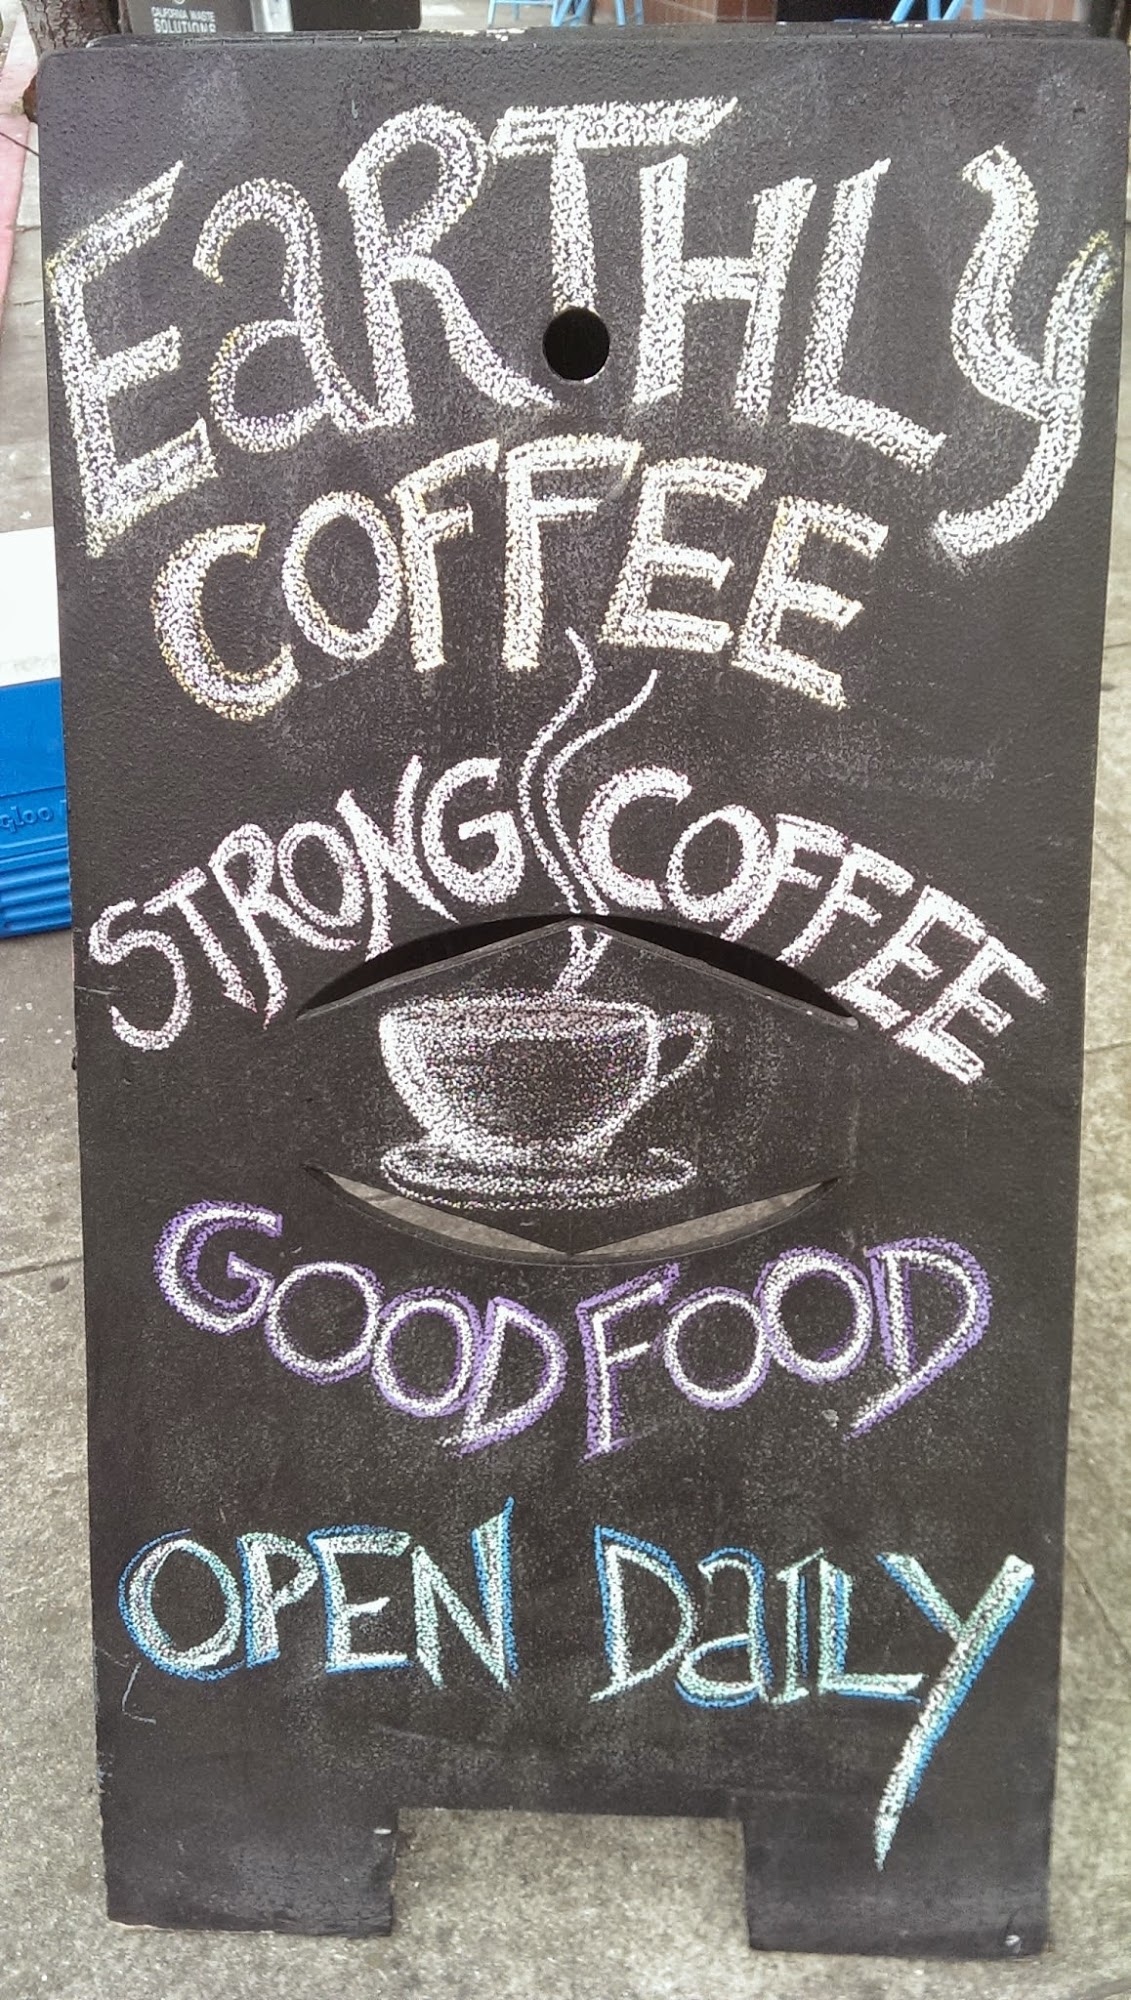 CALIFORNIA WASTE
SOLUTIONS
EaRTHLY
COFFEE
STRONG COFFEE
igloo
GOOD FOOD
OPEN DaILY